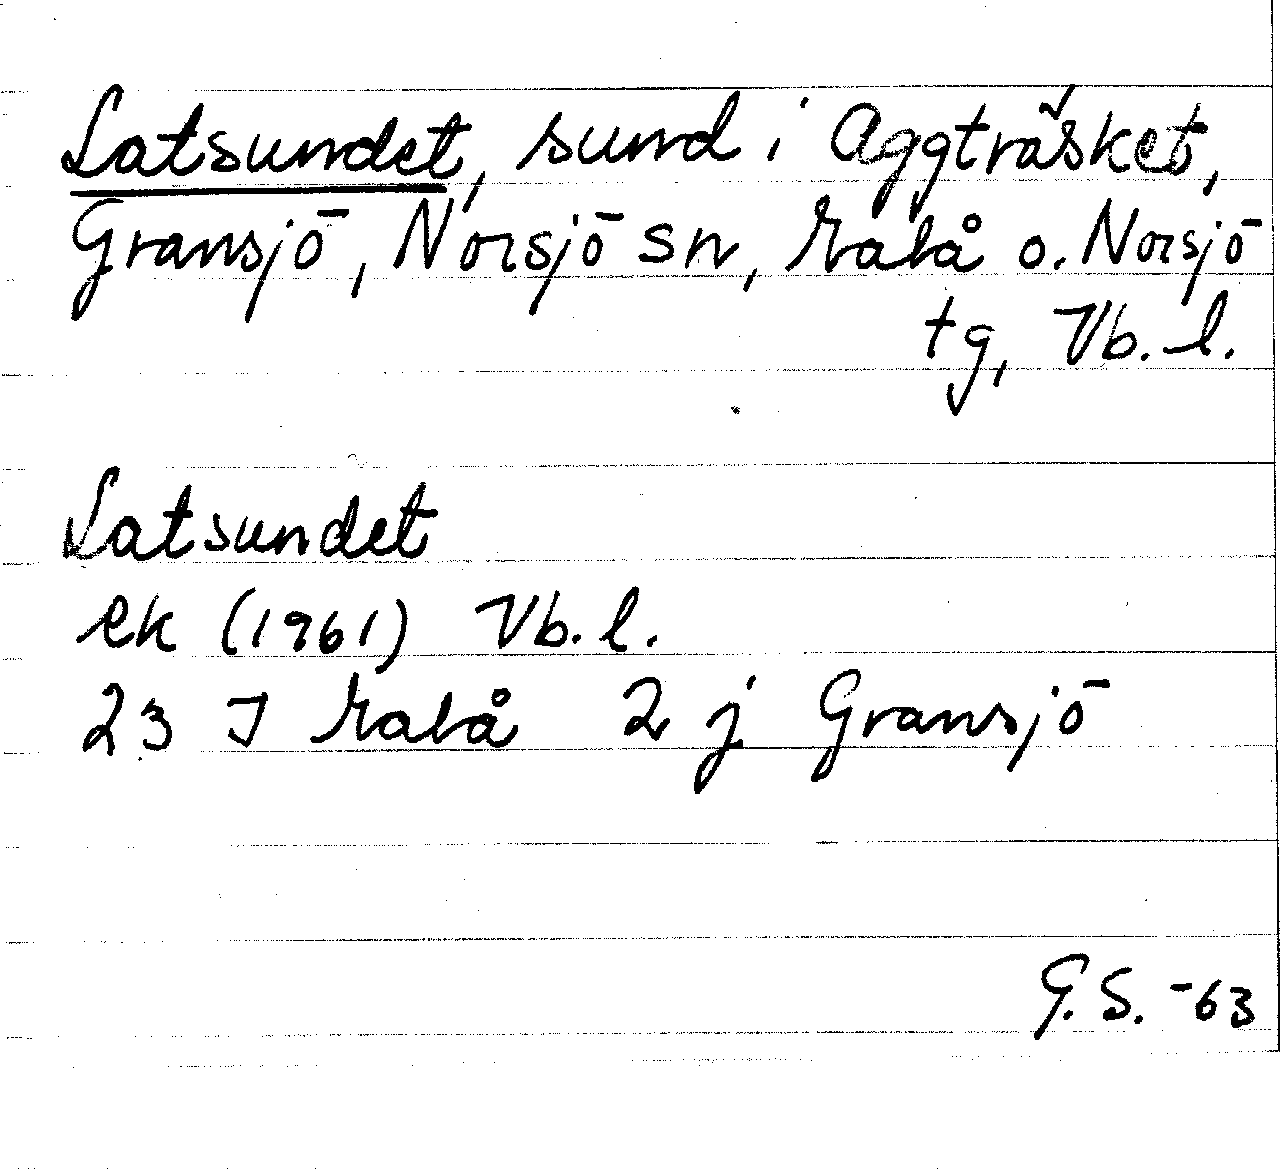 Latsundet, sund i Aggträsket,
Gransjö, Norsjö sn, Malå o. Norsjö
tg, Vb. l.
Latsundet
ek (1961) Vb. l.
23 J Malå 2 j Gransjö
G. S. -63